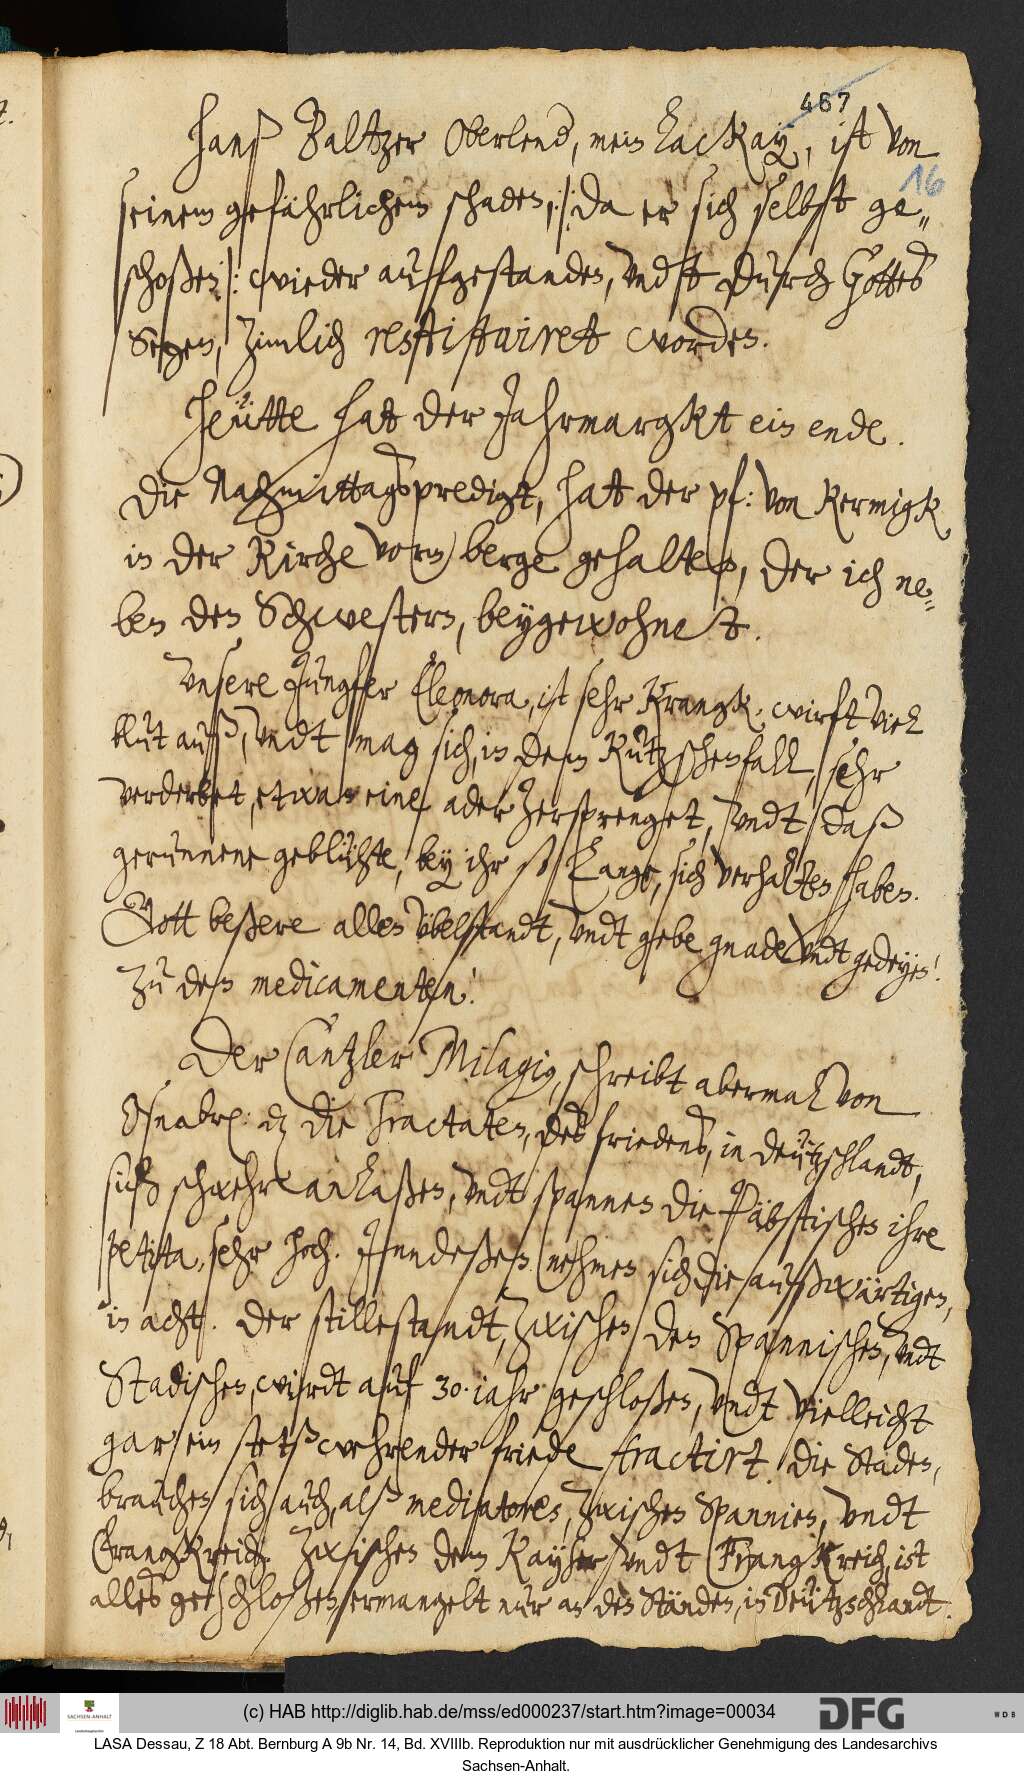 467
16
Hanß Baltzer Oberlend, mein Lackay, ist von
seinem gefährlichem schaden, /: da er sich selbst ge„
schoßen :/ wieder auffgestanden, undt durch Gottes
Segen, zimlich restituiret worden.
Heütte hat der Jahrmargkt ein ende.
Die Nachmittagspredigt, hat der pf: von Permigk
in der Kirche vorm berge gehalten, der ich ne„
ben den Schwestern, beygewohnet.
Unsere Jungfer Eleonora, ist sehr Krangk, wirft viel
blut auß, undt mag sich, in dem Kutzschenfall, sehr
verderbet, etwan eine ader zersprenget, undt daß
gerunnene geblühte, bey ihr so lange, sich verhalten haben.
Gott beßere allen übelstandt, undt gebe gnade undt gedeyen!
zu den medicamenten!
Der Cantzler Milagius, schreibt abermal von
Oßnabrü: daß die Tractaten, des friedens, in Deützschlandt,
sich schwehr anlaßen, undt spannen die Päbstischen ihre
petita, sehr hoch. Inndeßen nehmen sich die außwärtigen,
in acht. Der stillestandt, zwischen den Spannischen, undt
Stadischen, wirdt auf 30. iahr geschloßen, undt vielleicht
gar ein stetßwehrender friede tractirt. Die Staden,
brauchen sich auch, alß mediatores, zwischen Spannien, undt
Frangkreich. Zwischen dem Kayser undt Frangkreich, ist
alles geschloßen, ermangelt nur an den Ständen, in Deützschlandt.
(c) HAB http://diglib.hab.de/mss/ed000237/start.htm?image=00034
SACHSEN-ANHALT
DFG
WDB
LASA Dessau, Z 18 Abt. Bernburg A 9b Nr. 14, Bd. XVIIIb. Reproduktion nur mit ausdrücklicher Genehmigung des Landesarchivs
Sachsen-Anhalt.